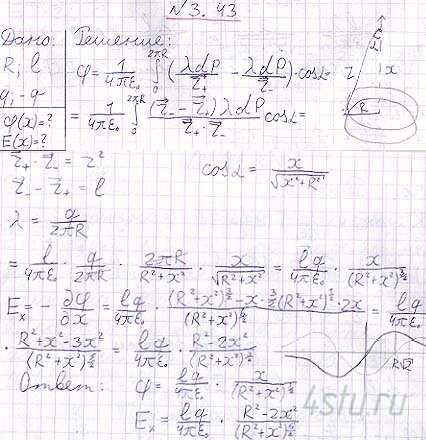 № 3. 43
Дано: Решение:
R; l
q; -q
φ(x)=?
E(x)=?
φ = 1/4πε₀ ∫₀^2πR (λdP/r₊ - λdP/r₋)·cosα =
= 1/4πε₀ ∫₀^2πR (r₋ - r₊)λdP/r₊·r₋ cosα =
r₊·r₋ = r²
r₋ - r₊ = l
cosα = x/√(x²+R²)
λ = q/2πR
= l/4πε₀ · q/2πR · 2πR/(R²+x²) · x/√(R²+x²) = lq/4πε₀ · x/(R²+x²)^3/2
Eₓ = - ∂φ/∂x = lq/4πε₀ · ((R²+x²)^3/2 - x·3/2(R²+x²)^1/2·2x)/(R²+x²)^6/2 = lq/4πε₀ ·
· (R²+x²-3x²)/(R²+x²)^5/2 = lq/4πε₀ · (R²-2x²)/(R²+x²)^5/2
Ответ: φ = lq/4πε₀ · x/(R²+x²)^3/2
Eₓ = lq/4πε₀ · (R²-2x²)/(R²+x²)^5/2
x
R
4stu.ru